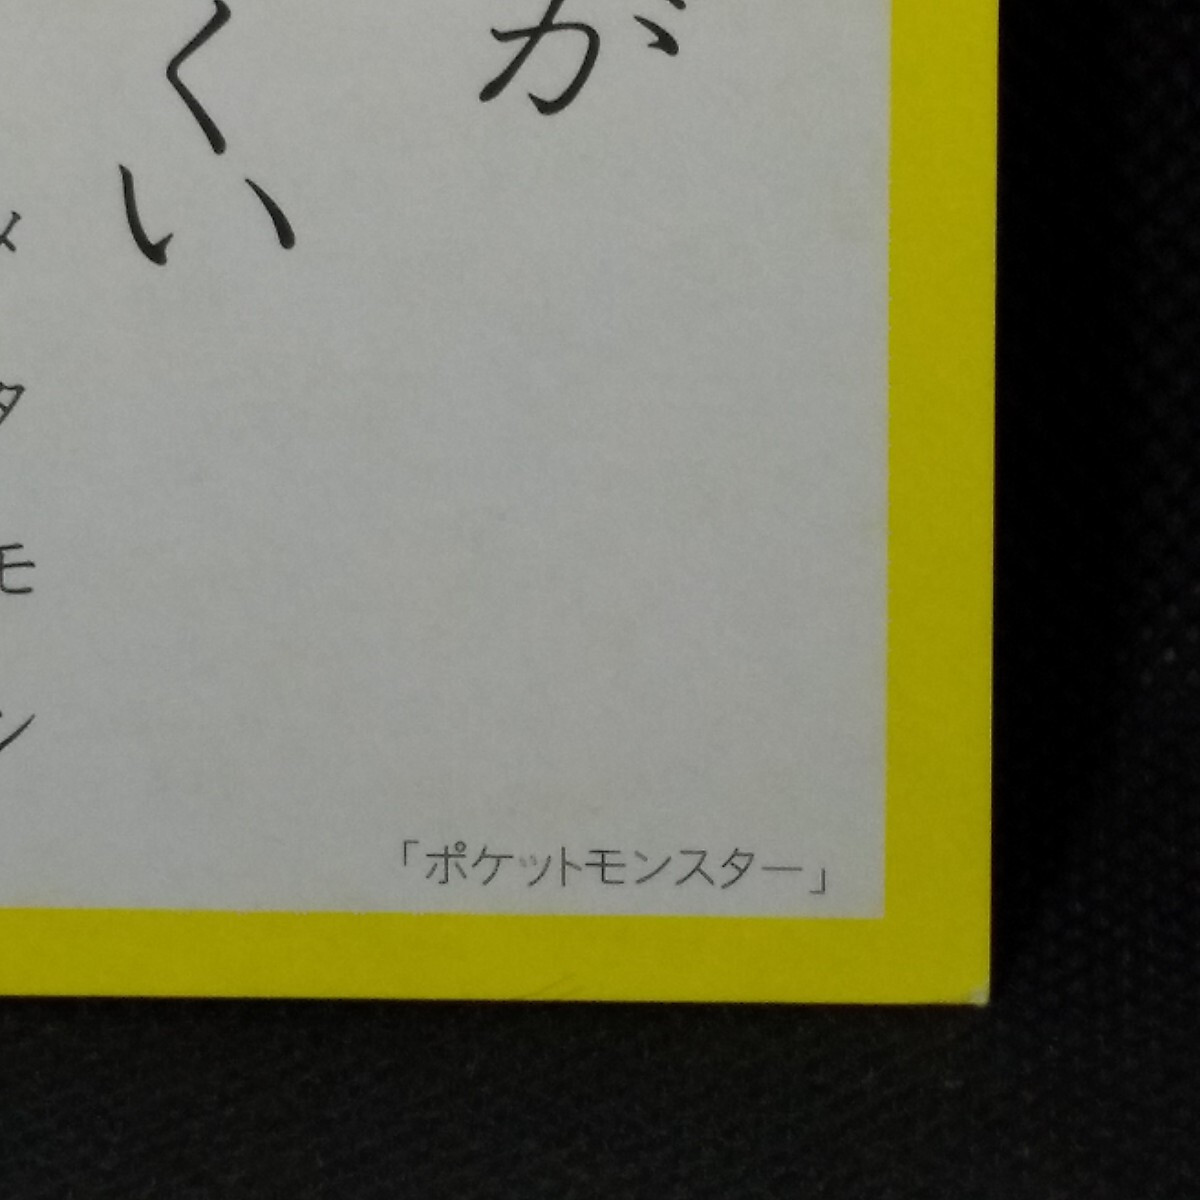 が
くい
メタモン
「ポケットモンスター」